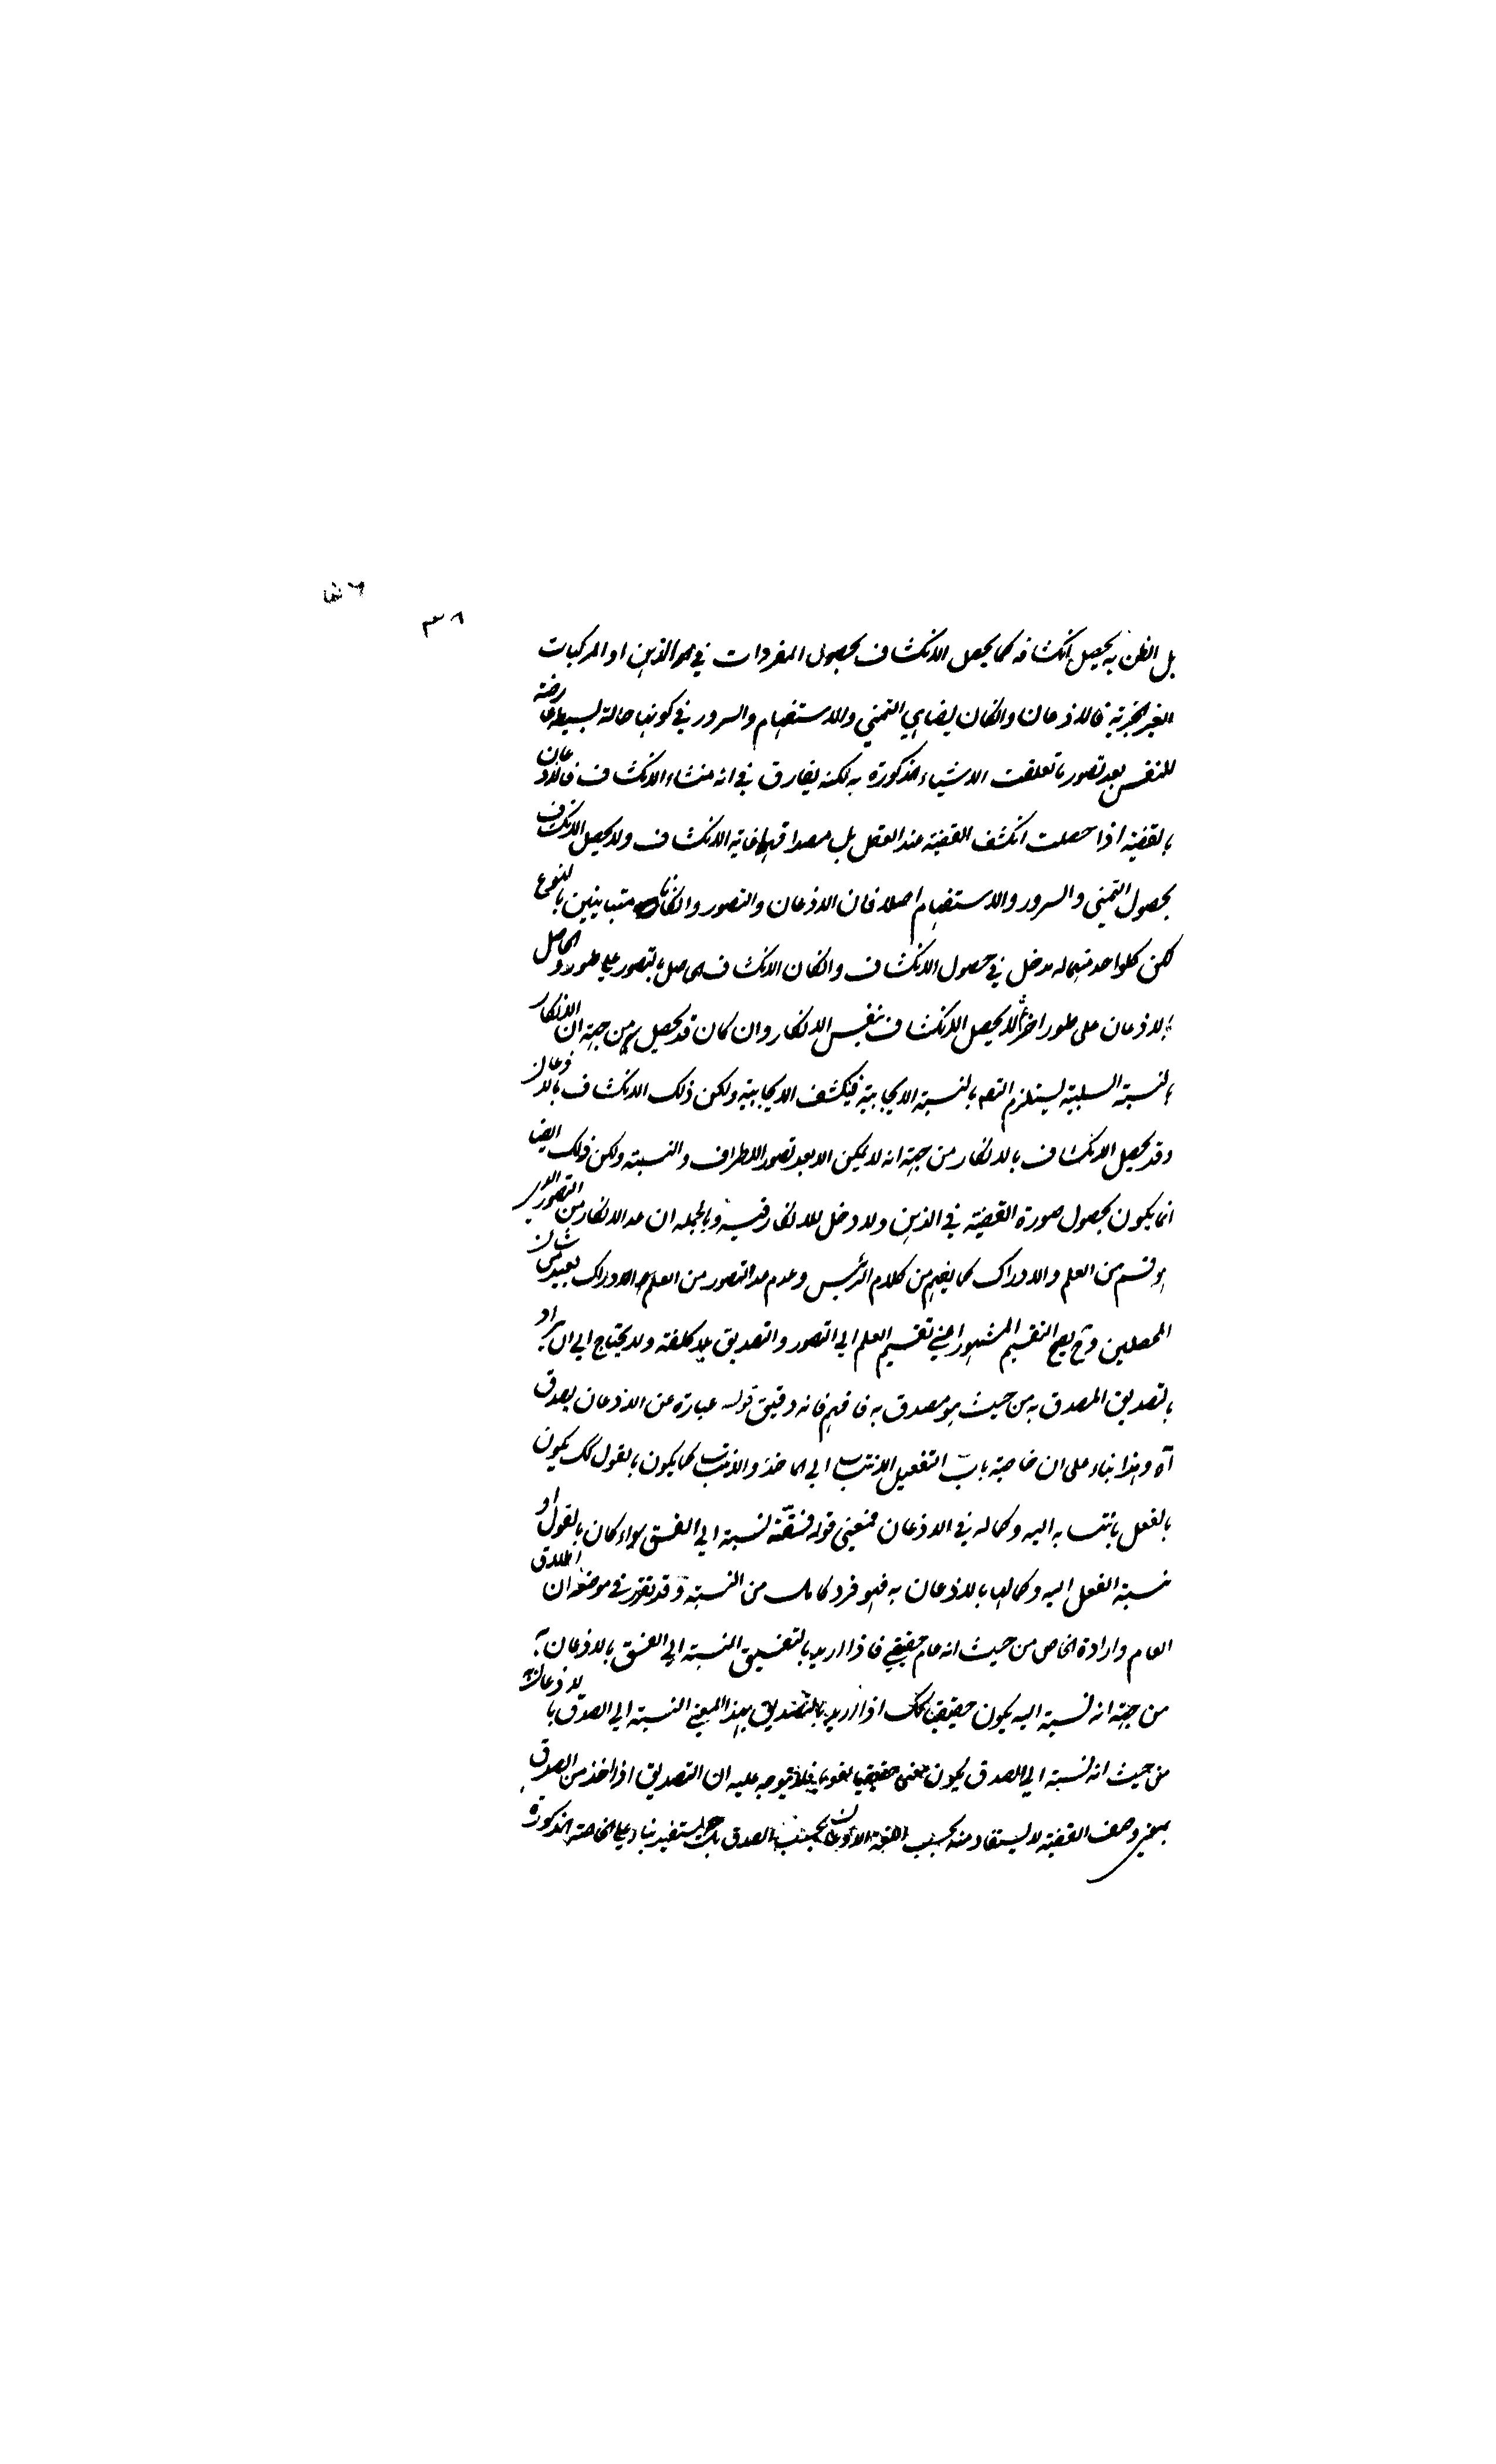 ٣٨
بل الظن به يحصل انكشافه كما يحصل الانكشاف بحصول المفردات في الذهن او المركبات
الغير الخبرية فالاذعان وان كان يضاهي التمني والاستفهام والسرور في كونها حالة بسيطة عارضة
للنفس بعد تصور ما تعلقت الاشياء المذكورة به لكنه يفارق في انه منشاء الانكشاف فالاذعان
بالقضية اذا حصلت انكشف القضية عند العقل بل مصداقها غاية الانكشاف ولا يحصل الانكشاف
بحصول التمني والسرور والاستفهام اصلا فان الاذعان والتصور وان كانا متباينين بالنوع
لكن كلواحد منهما له مدخل في حصول الانكشاف وان كان الانكشاف الحاصل بالتصور على طور والحاصل
بالاذعان على طور اخر لا يحصل الانكشاف بنفس الانكار وان كان قد يحصل من جهة ان الانكار
بالنسبة السلبية يستلزم بالنسبة الايجابية فينكشف الايجابية ولكن ذلك الانكشاف بالاذعان
وقد يحصل الانكشاف بالانكار من جهة انه لا يمكن الا بعد تصور الاطراف والنسبة ولكن ذلك ايضا
انما يكون بحصول صورة القضية في الذهن ولا دخل للانكار فيه وبالجملة ان عد الانكار من التصور الذي
هو قسم من العلم والادراك كما يفهم من كلام الرئيس وعدم عد التصور من العلم والادراك بعيد من شان
المحصلين وح يصح التقسيم المشهور اعني تقسيم العلم الي التصور والتصديق بلا كلفة ولا يحتاج الي ان يراد
بالتصديق المصدق به من حيث هو مصدق به فافهم فانه دقيق قوله عبارة عن الاذعان بصدق
آه وهذا بناء على ان خاصية باب التفعيل الانتساب الي الماخذ والانتساب كما يكون بالقول كك يكون
بالفعل ينتسب به اليه وكماله في الاذعان فمعنى قوله فسّقته نسبته الي الفسق سواء كان بالقول او
نسبة الفعل اليه وكمالها بالاذعان به فهو فرد كامل من النسبة وقد تقرر في موضعه ان اطلاق
العام وارادة الخاص من حيث انه عام حقيقي فاذا اريد بالتفسيق النسبة الي الفسق بالاذعان به
من جهة انه نسبة اليه يكون حقيقيا كك اذا اريد بالتصديق بهذا المعني النسبة الي الصدق بالاذعان به
من حيث انه نسبة الي الصدق يكون معنى حقيقيا لغويا فلا يتوجه عليه ان التصديق اذا اخذ من الصدق
بمعني وصف القضية لا يستفاد منه بحسب اللغة الاذعان الصدق يستفيد بناء علي الخاصة المذكورة